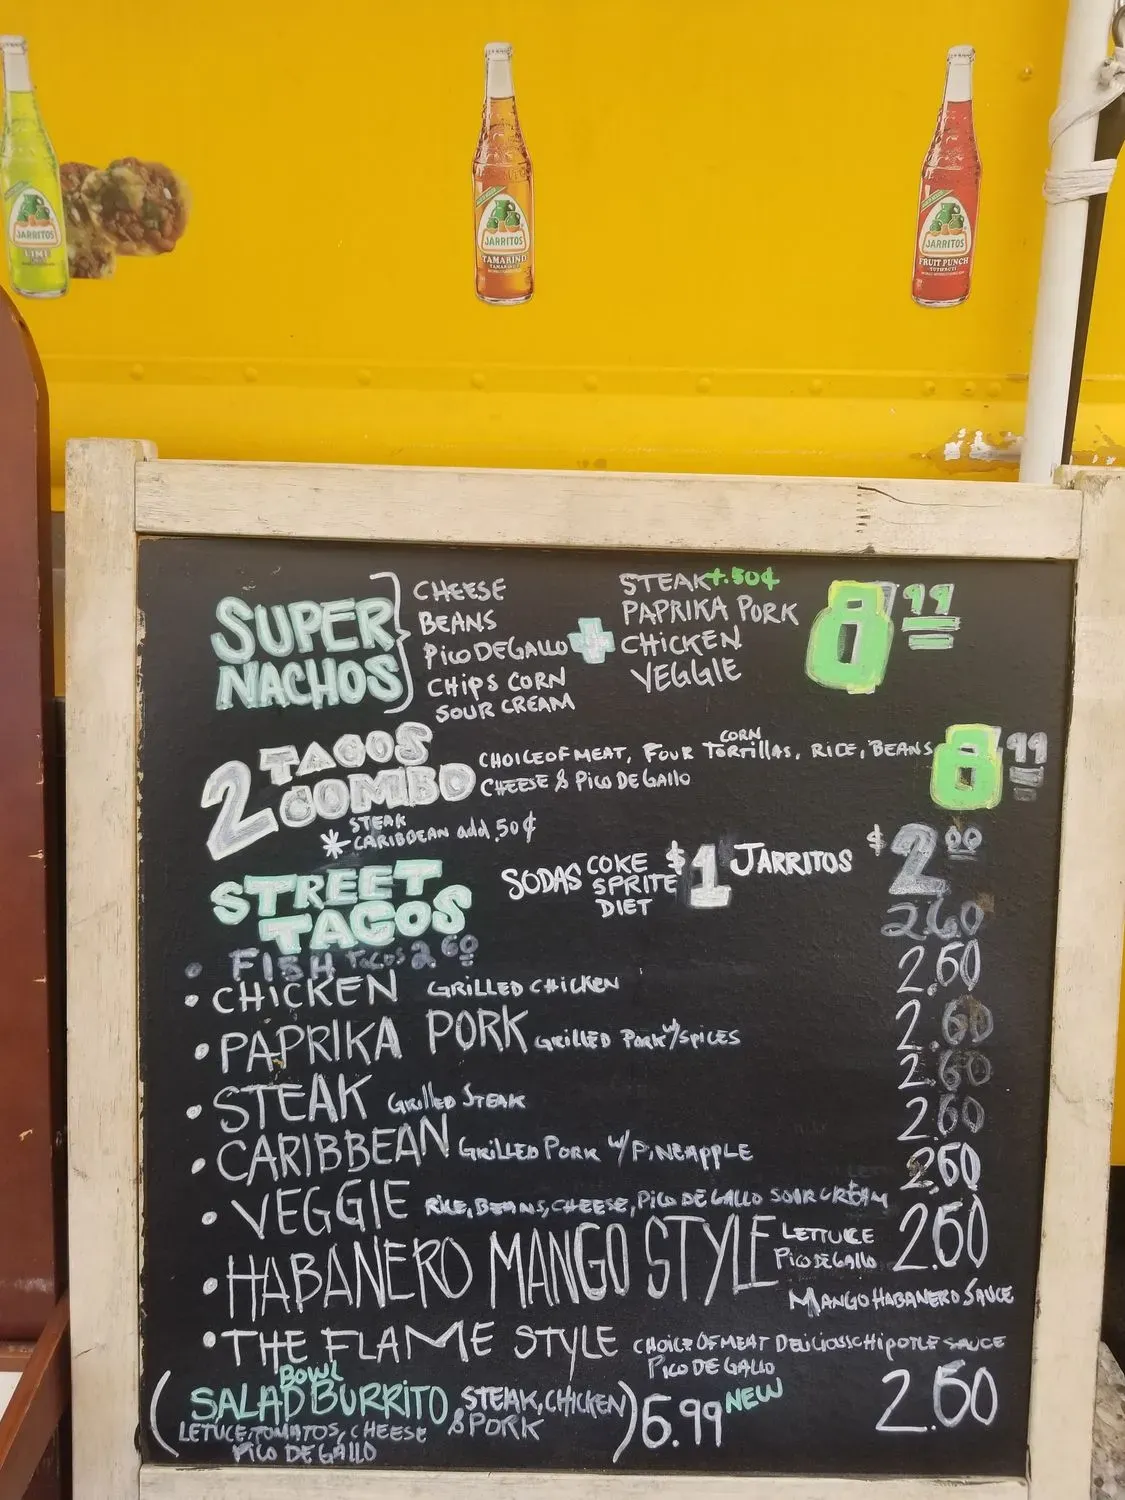 JARRITOS
LIME
JARRITOS
TAMARIND
JARRITOS
FRUIT PUNCH
SUPER
NACHOS
CHEESE
BEANS
PICO DE GALLO
CHIPS CORN
SOUR CREAM
+
STEAK +.50¢
PAPRIKA PORK
CHICKEN
VEGGIE
8.99
2 TACOS
COMBO
CHOICE OF MEAT, FOUR CORN TORTILLAS, RICE, BEANS
CHEESE & PICO DE GALLO
8.99
* STEAK
CARIBBEAN add .50¢
STREET
TACOS
SODAS COKE
SPRITE
DIET
$1
JARRITOS $2.00
2.60
• FISH TACOS 2.60
• CHICKEN GRILLED CHICKEN 2.60
• PAPRIKA PORK GRILLED PORK W/SPICES 2.60
2.60
• STEAK GRILLED STEAK 2.60
• CARIBBEAN GRILLED PORK W/PINEAPPLE 2.60
• VEGGIE RICE, BEANS, CHEESE, PICO DE GALLO SOUR CREAM
• HABANERO MANGO STYLE LETTUCE 2.60
PICO DE GALLO
MANGO HABANERO SAUCE
• THE FLAME STYLE CHOICE OF MEAT DELICIOUS CHIPOTLE SAUCE
PICO DE GALLO
2.60
BOWL
(SALAD BURRITO, STEAK, CHICKEN) 6.99 NEW
& PORK
LETUCE, TOMATOS, CHEESE
PICO DE GALLO